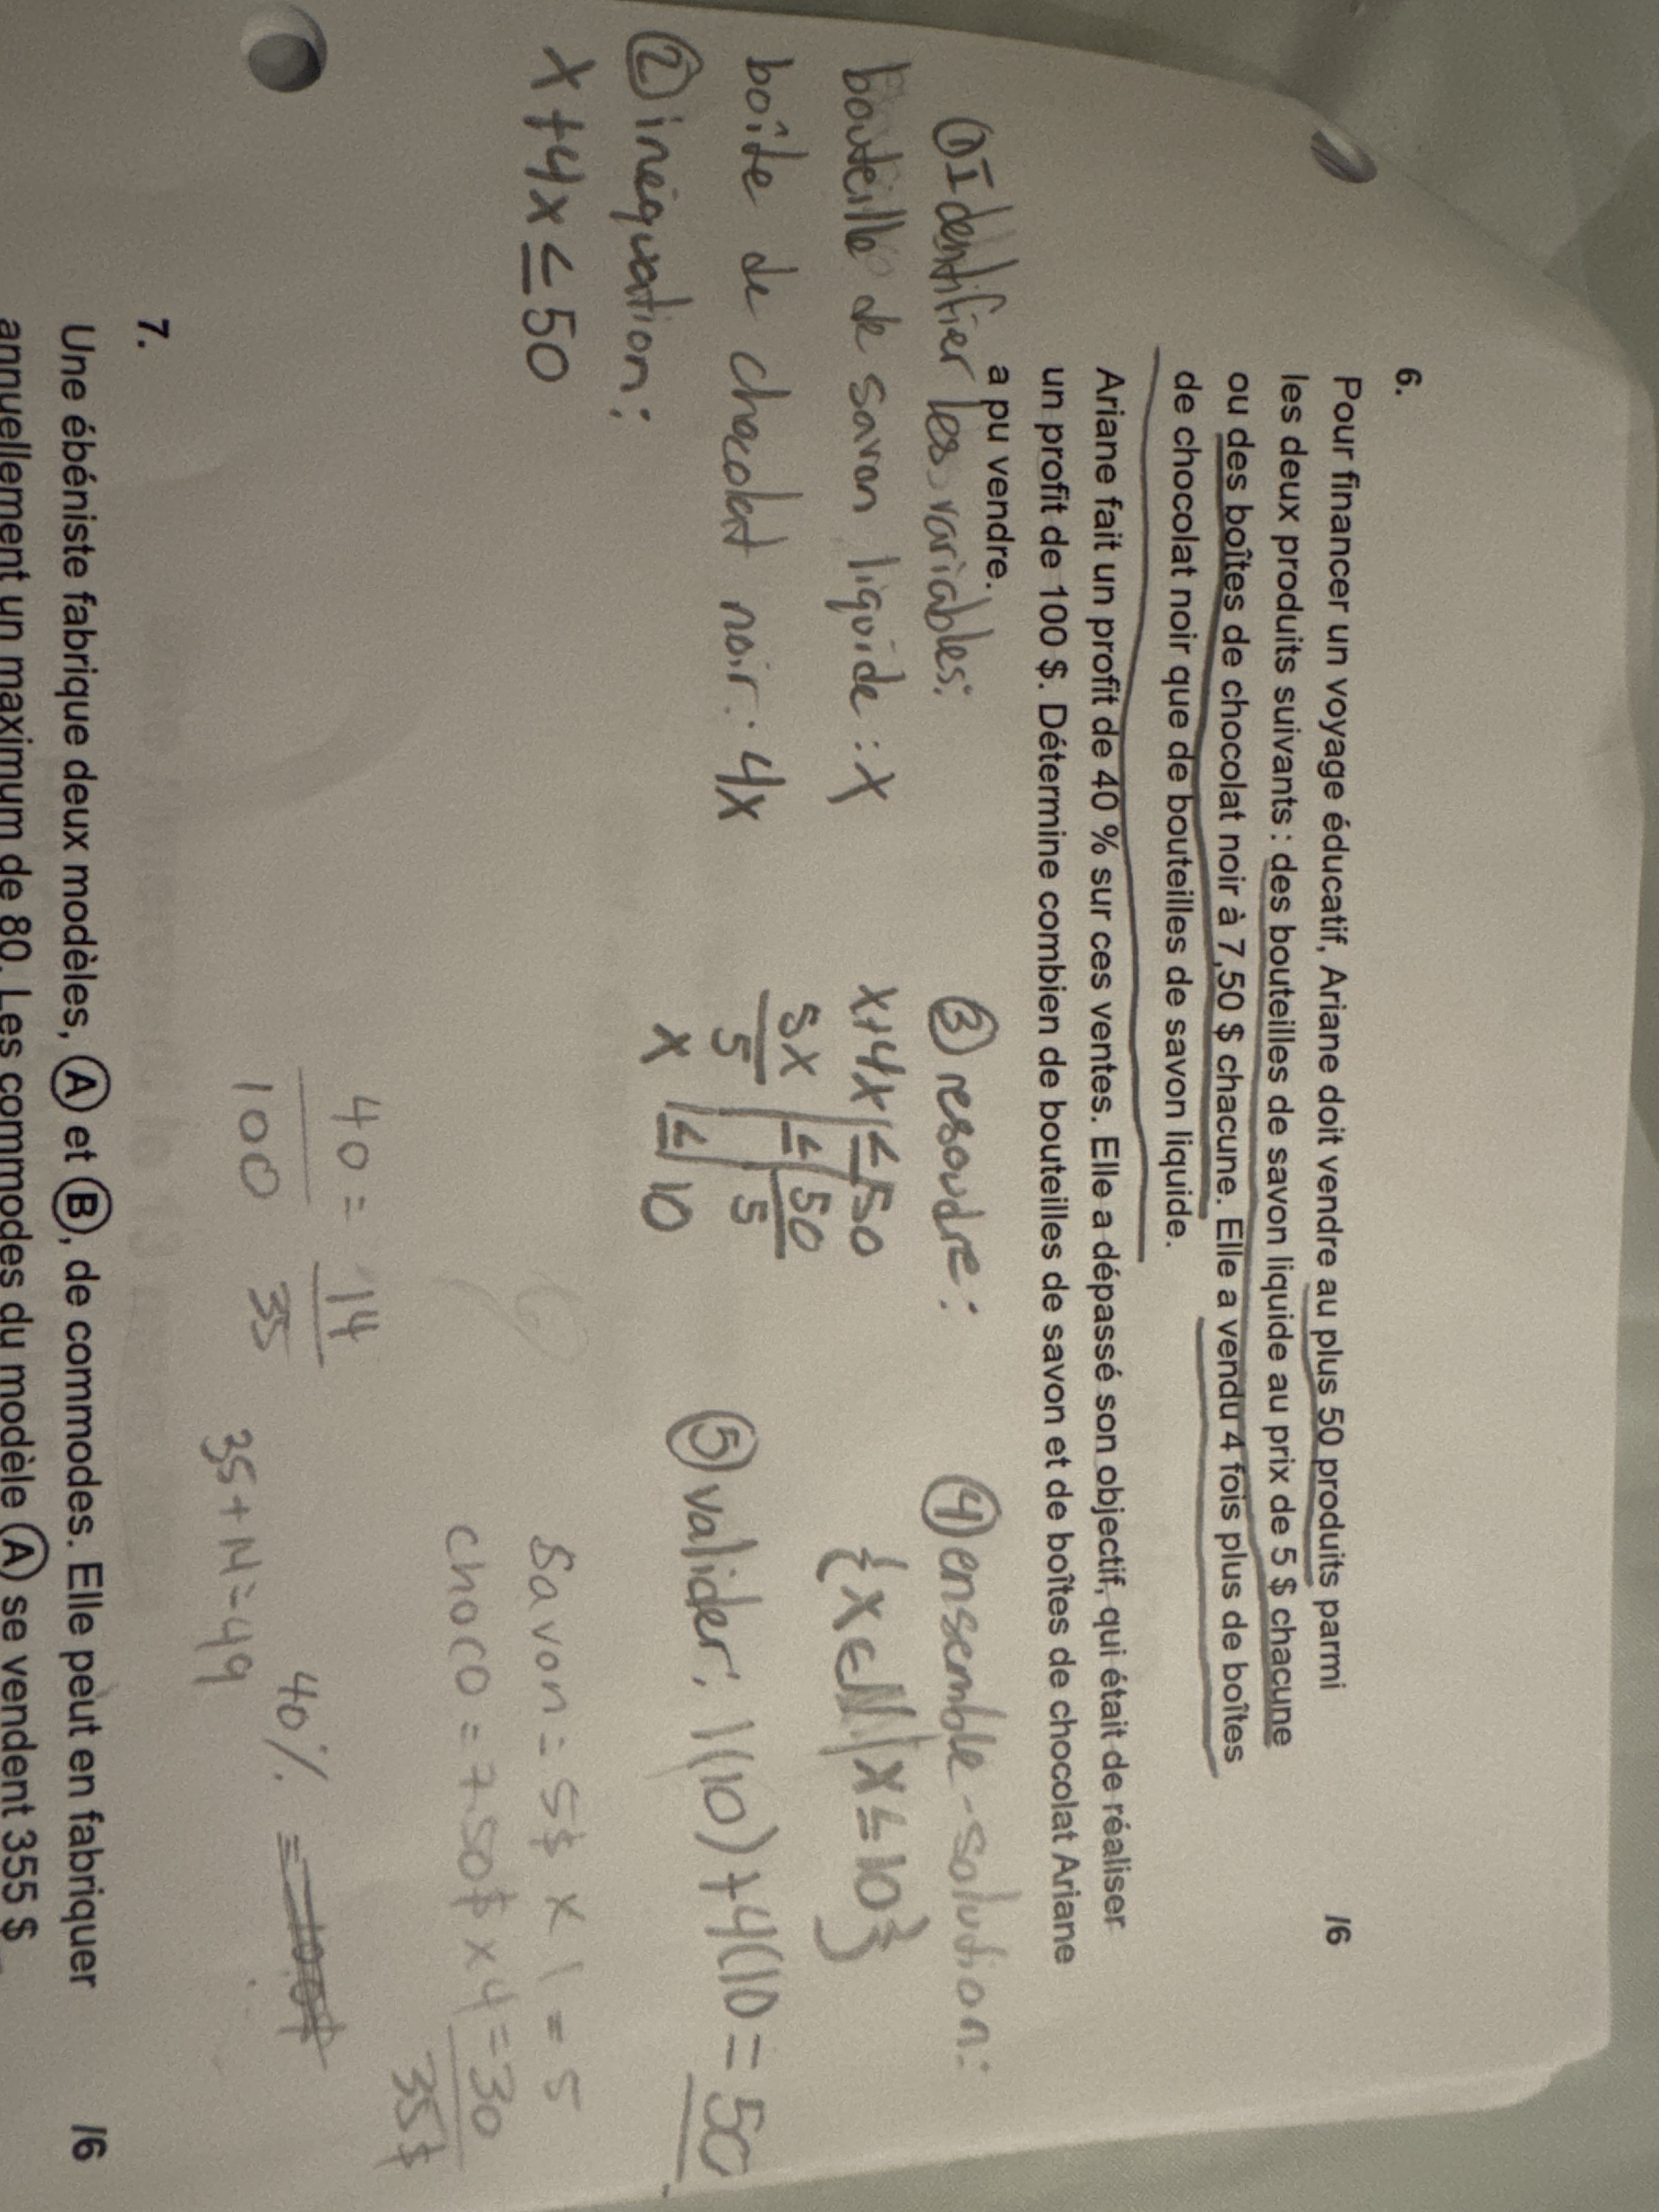 6.
Pour financer un voyage éducatif, Ariane doit vendre au plus 50 produits parmi /6
les deux produits suivants : des bouteilles de savon liquide au prix de 5 $ chacune
ou des boîtes de chocolat noir à 7,50 $ chacune. Elle a vendu 4 fois plus de boîtes
de chocolat noir que de bouteilles de savon liquide.
Ariane fait un profit de 40 % sur ces ventes. Elle a dépassé son objectif, qui était de réaliser
un profit de 100 $. Détermine combien de bouteilles de savon et de boîtes de chocolat Ariane
a pu vendre.
① Identifier les variables:
bouteille de savon liquide : x
boîte de chocolat noir : 4x
② inéquation :
x + 4x ≤ 50
③ resoudre :
x+4x ≤ 50
5x ≤ 50
5 5
x ≤ 10
④ ensemble-solution :
{x ∈ N | x ≤ 10}
⑤ valider: 1(10)+4(10 = 50
Savon = 5$ x 1 = 5
choco = 7,50$ x 4 = 30
35$
40 = 14
100 35
40%
35+14=49
7.
Une ébéniste fabrique deux modèles, A et B, de commodes. Elle peut en fabriquer /6
annuellement un maximum de 80. Les commodes du modèle A se vendent 355 $